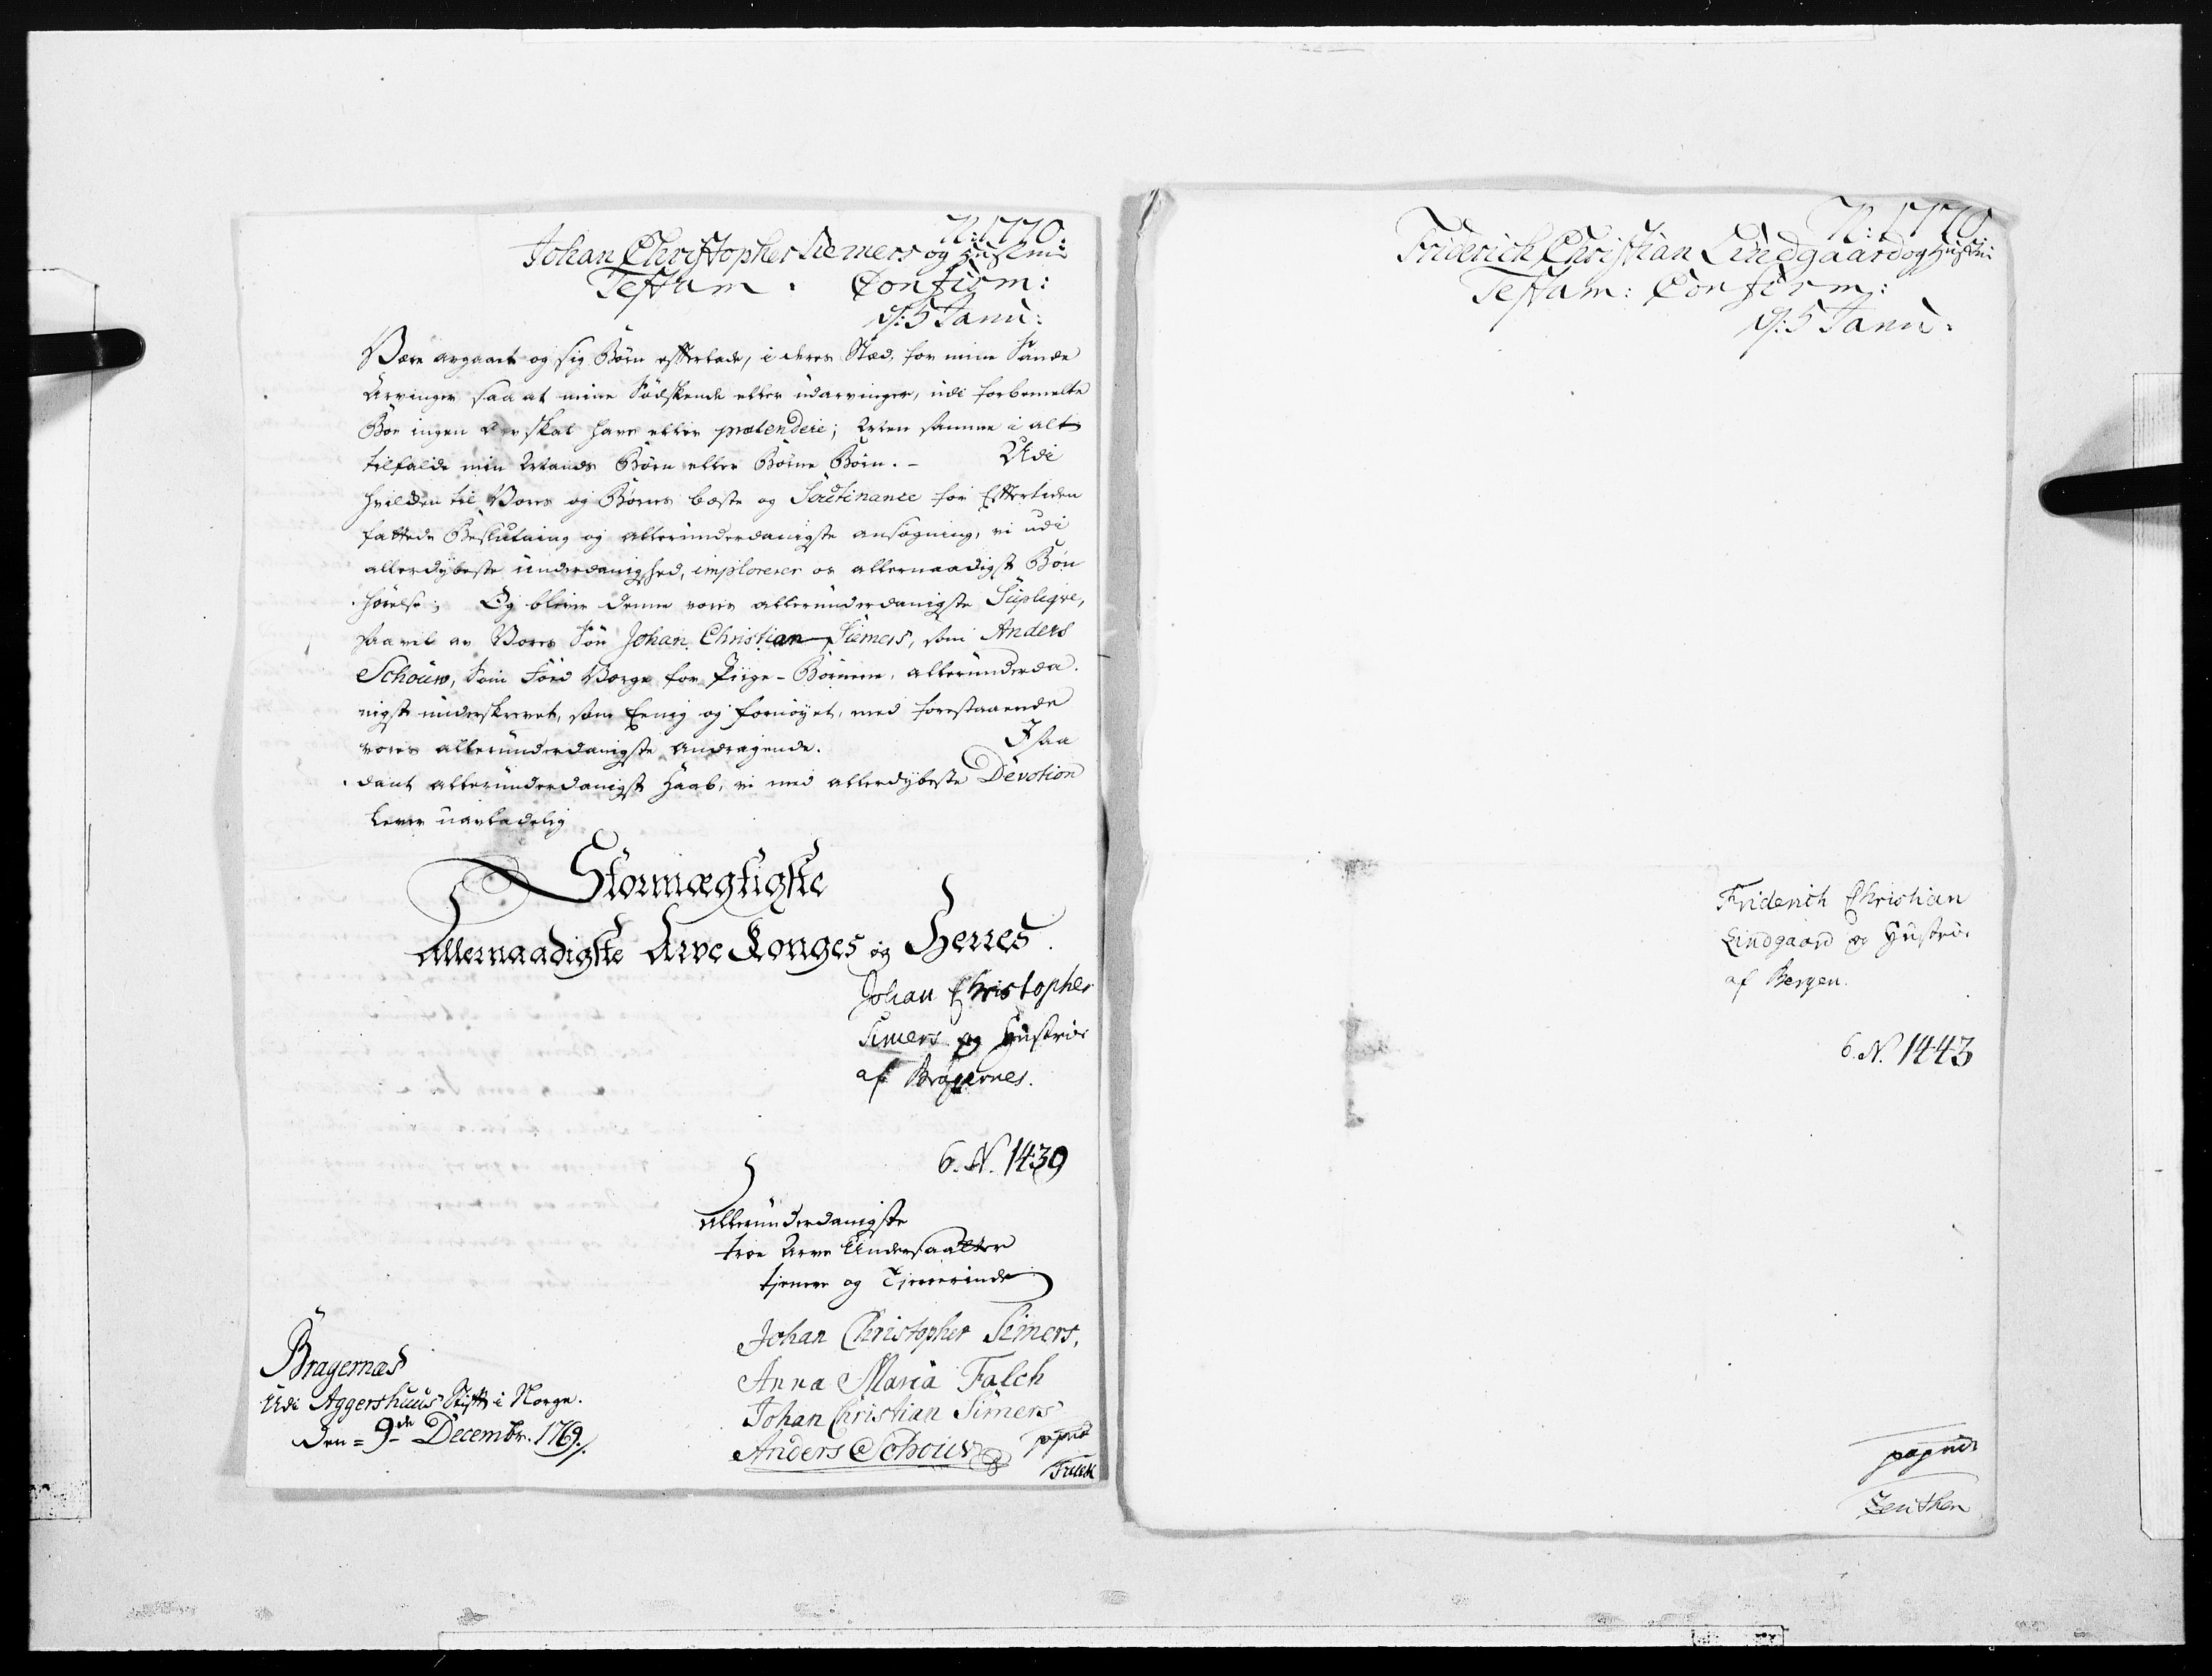 N: 1770:
Johan Christopher Siemers og Hustrue
Testam. Confirm:
d: 5 Janu:
Være avgaaet og sig Børn effterlade, i deres Stæd, for mine Sande
Arvinger saa at mine Sødskende eller udarvinger, udi forbemelte
Boe ingen Arv skal have eller prætendere; Men samme i alt
tilfalde min Mands Børn eller Børne Børn. – Udi
hvilcken til Vores og Børnes beste og Soutinance for Effertiden
fattede Beslutning og allerunderdanigste ansøgning, vi udi
allerdybeste underdanighed, implorerer os allernaadigst Bøn
hørelse; Og bliver denne vores allerunderdanigste Supliqve,
saavel av Vores Søn Johan Christian Siemers, som Anders
Schouw, som Født Værge for Piige-Børnene, allerunderda
nigst underskrevet, som Eenig og fornøyet, med forestaaende
vores allerunderdanigste andragende. I saa
dant allerunderdanigst Haab, vi med allerdybeste Devotion
lever uavladelig
Stormægtigste
Allernaadigste Arve Konges og Herres.
Johan Christopher
Simers og Hustrue
af Bragernes.
6. N. 1439
allerunderdanigste
troe Arve Undersaatter
tjener og Tjenerinde
Johan Christopher Simers.
Anna Maria Falch
Johan Christian Simers
Anders Schouw
Bragernæs
Udi Aggershuus Stift i Norge.
den = 9de Decembr. 1769.
N: 1770
Friderich Christian Lindgaard og Hustru:
Testam: Confirm:
d: 5 Janu:
Friderich Christian
Lindgaard og Hustrue
af Bergen.
6. N. 1443
Zeuthen